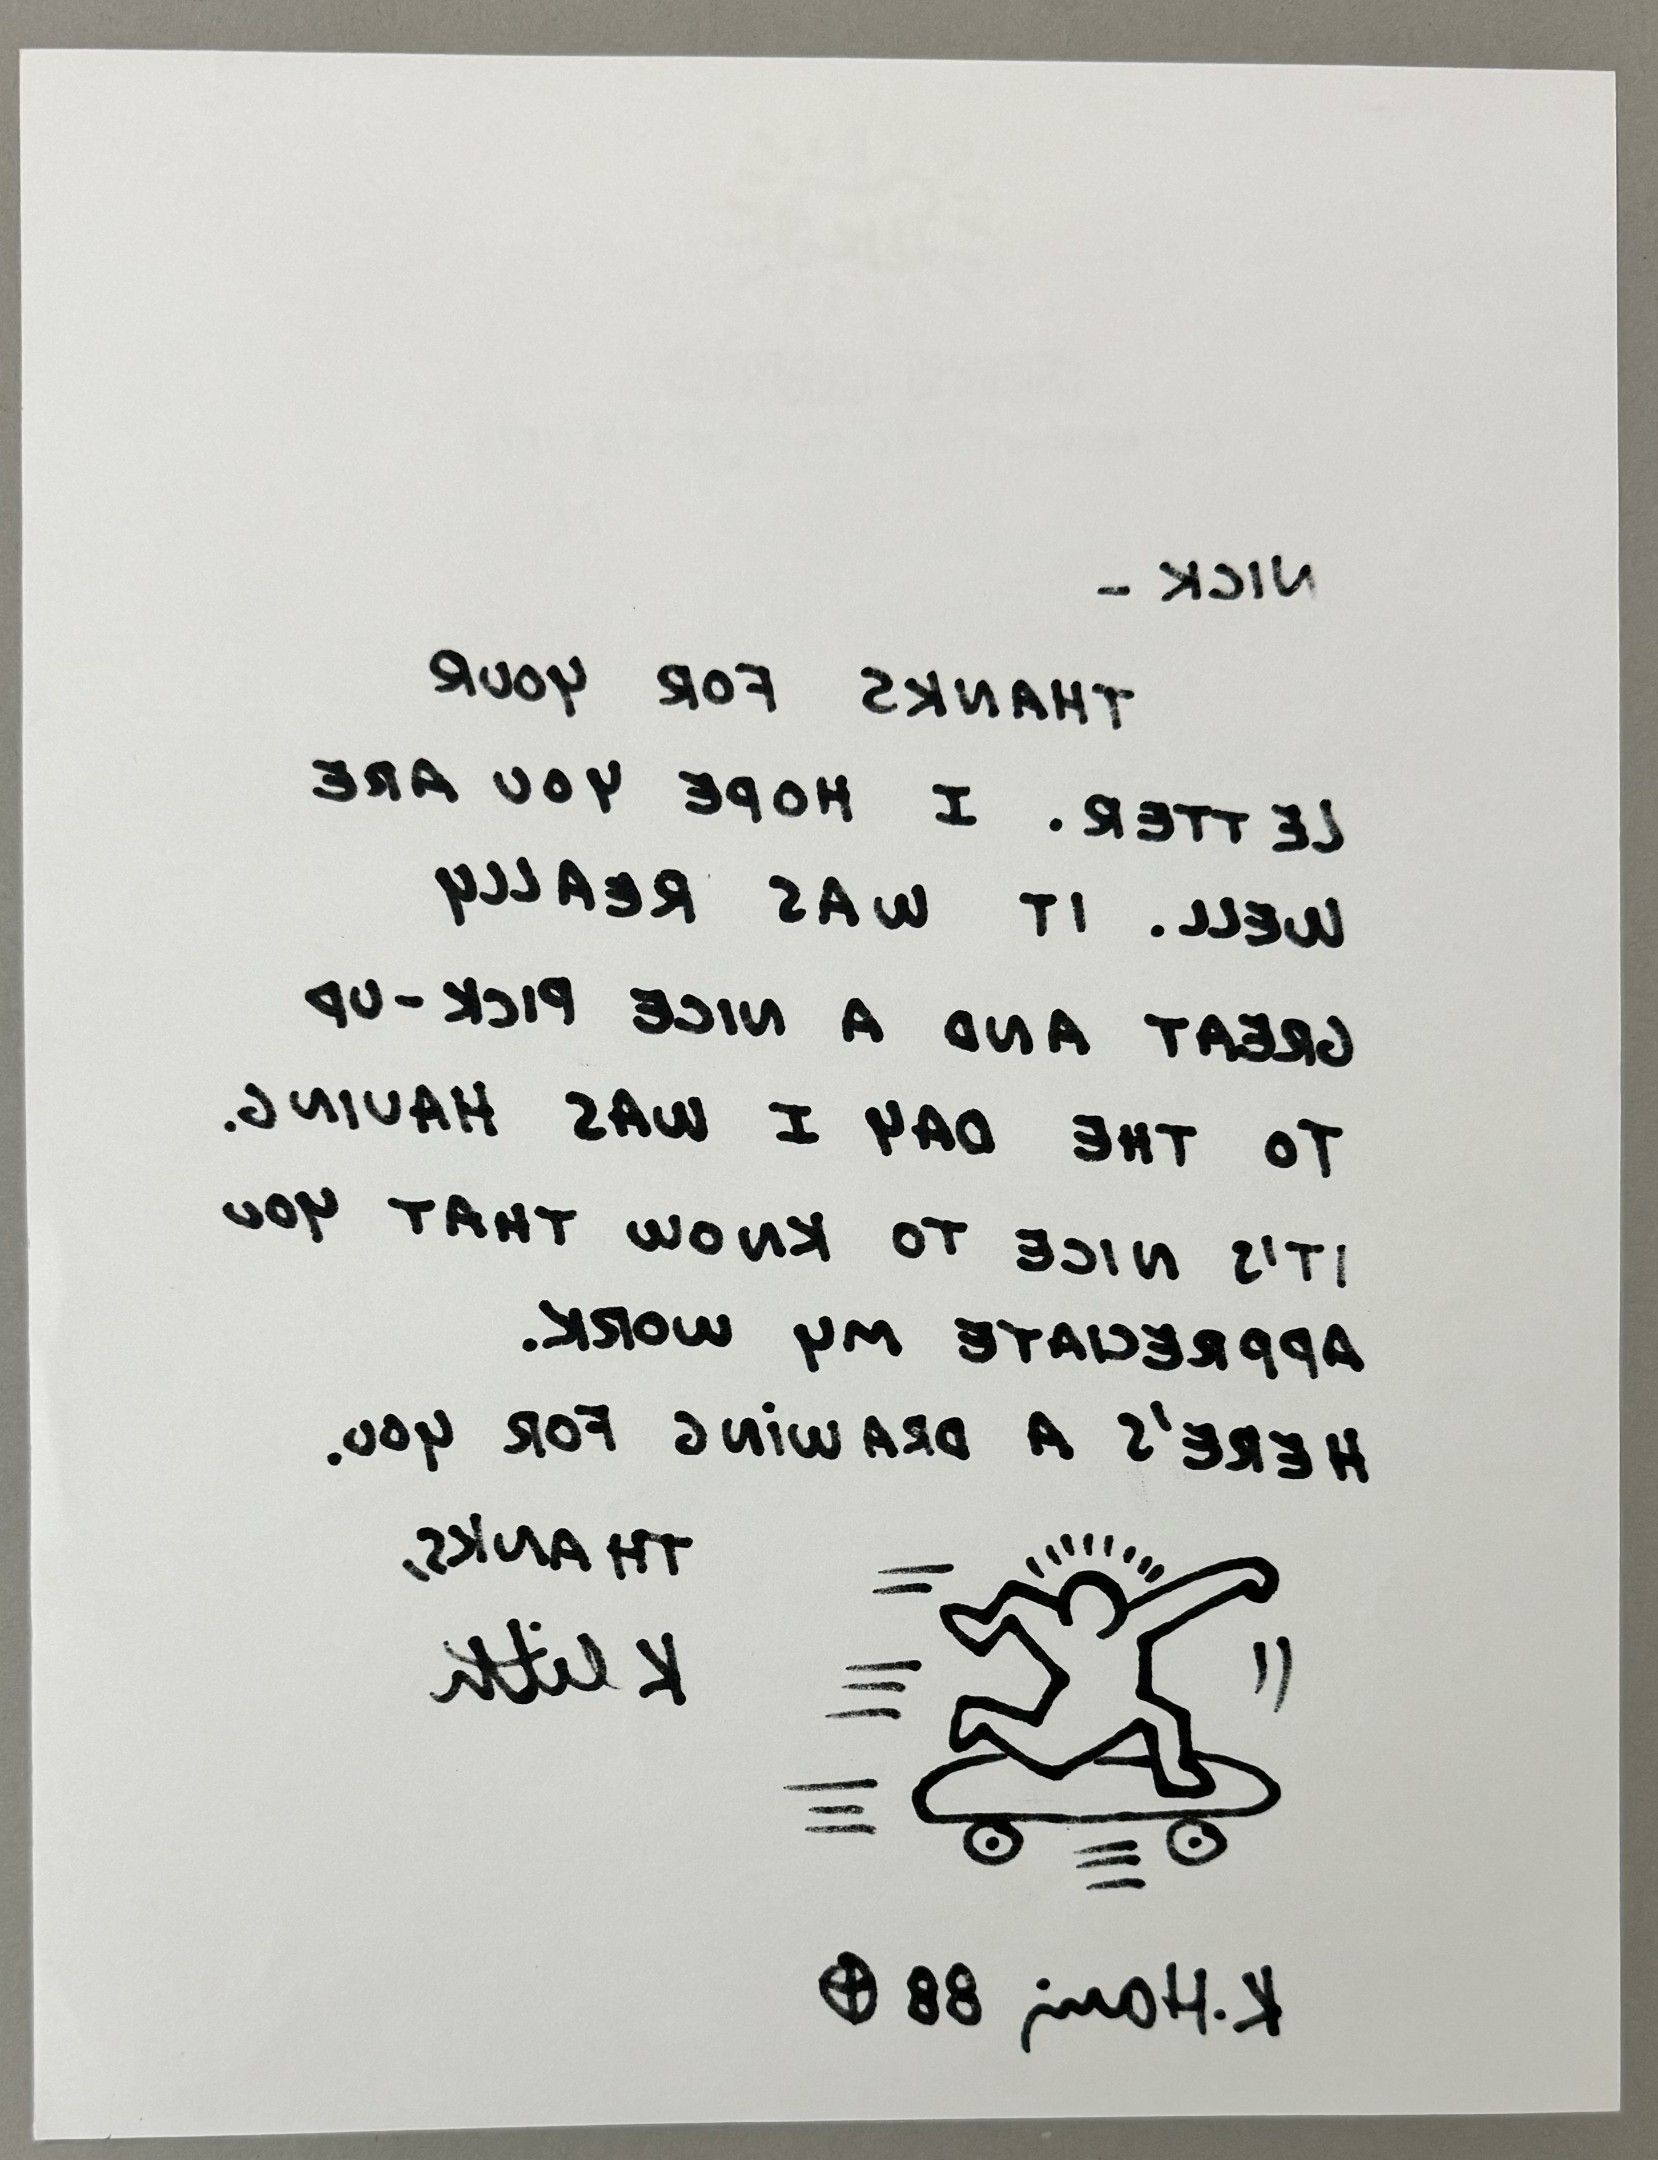 NICK -
THANKS FOR YOUR
LETTER. I HOPE YOU ARE
WELL. IT WAS REALLY
GREAT AND A NICE PICK-UP
TO THE DAY I WAS HAVING.
IT'S NICE TO KNOW THAT YOU
APPRECIATE MY WORK.
HERE'S A DRAWING FOR YOU.
THANKS,
Keith
K. Haring 88 ⊕